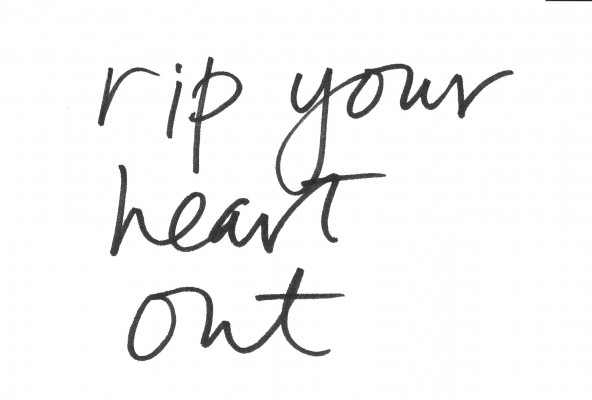 rip your
heart
out